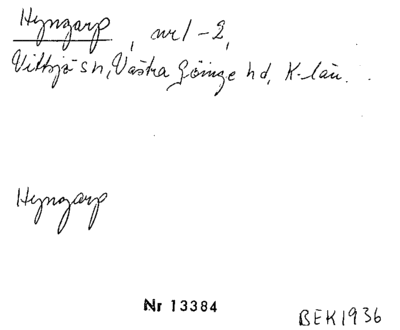 Hyngarp, nr 1-2,
Vittsjö sn, Västra Göinge hd, K-län.
Hyngarp
Nr 13384
BEK1936